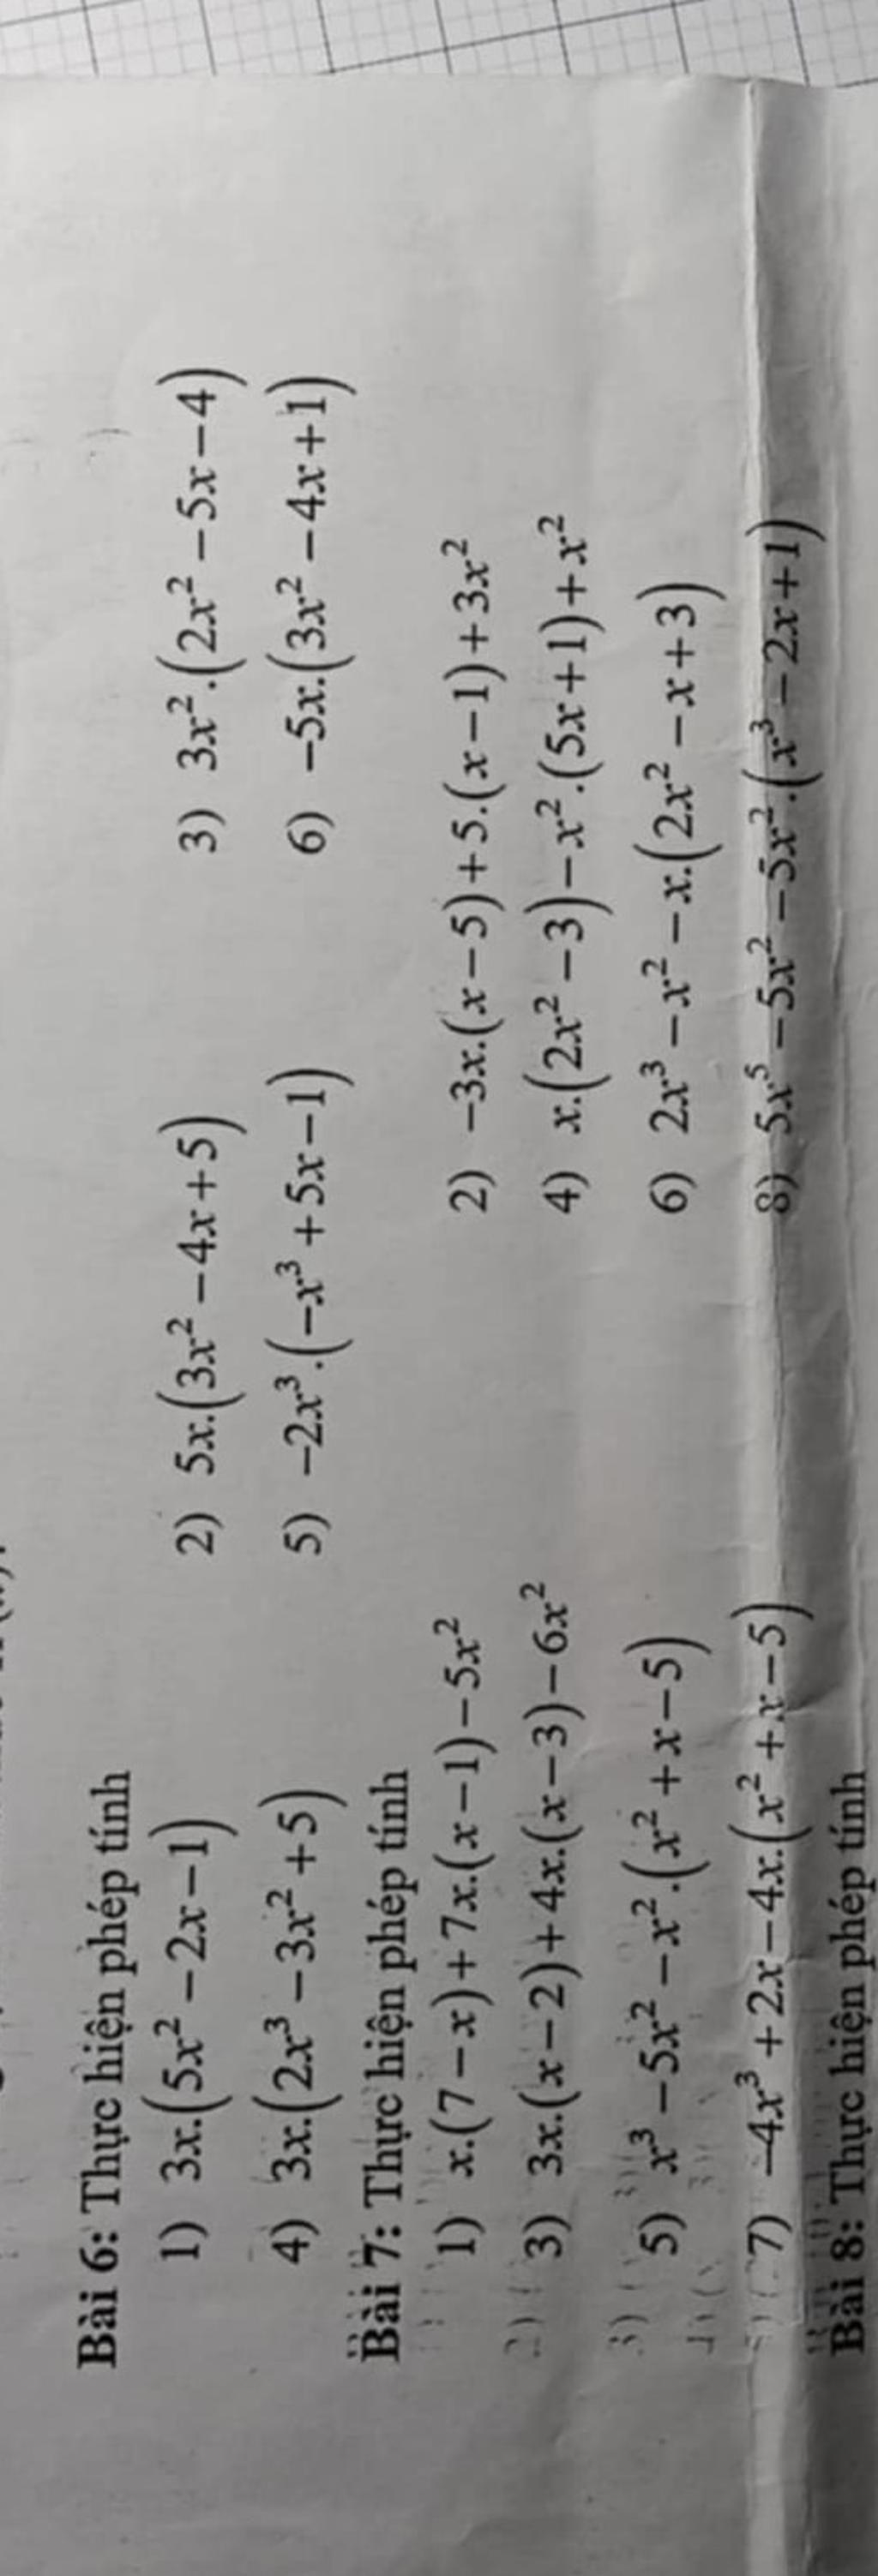 Bài 6: Thực hiện phép tính
1) 3x.(5x² − 2x − 1) 2) 5x.(3x² − 4x + 5) 3) 3x².(2x² − 5x − 4)
4) 3x.(2x³ − 3x² + 5) 5) −2x³.(−x³ + 5x − 1) 6) −5x.(3x² − 4x + 1)
Bài 7: Thực hiện phép tính
1) x.(7 − x) + 7x.(x − 1) − 5x² 2) −3x.(x − 5) + 5.(x − 1) + 3x²
3) 3x.(x − 2) + 4x.(x − 3) − 6x² 4) x.(2x² − 3) − x².(5x + 1) + x²
5) x³ − 5x² − x².(x² + x − 5) 6) 2x³ − x² − x.(2x² − x + 3)
7) −4x³ + 2x − 4x.(x² + x − 5) 8) 5x⁵ − 5x² − 5x².(x³ − 2x + 1)
Bài 8: Thực hiện phép tính